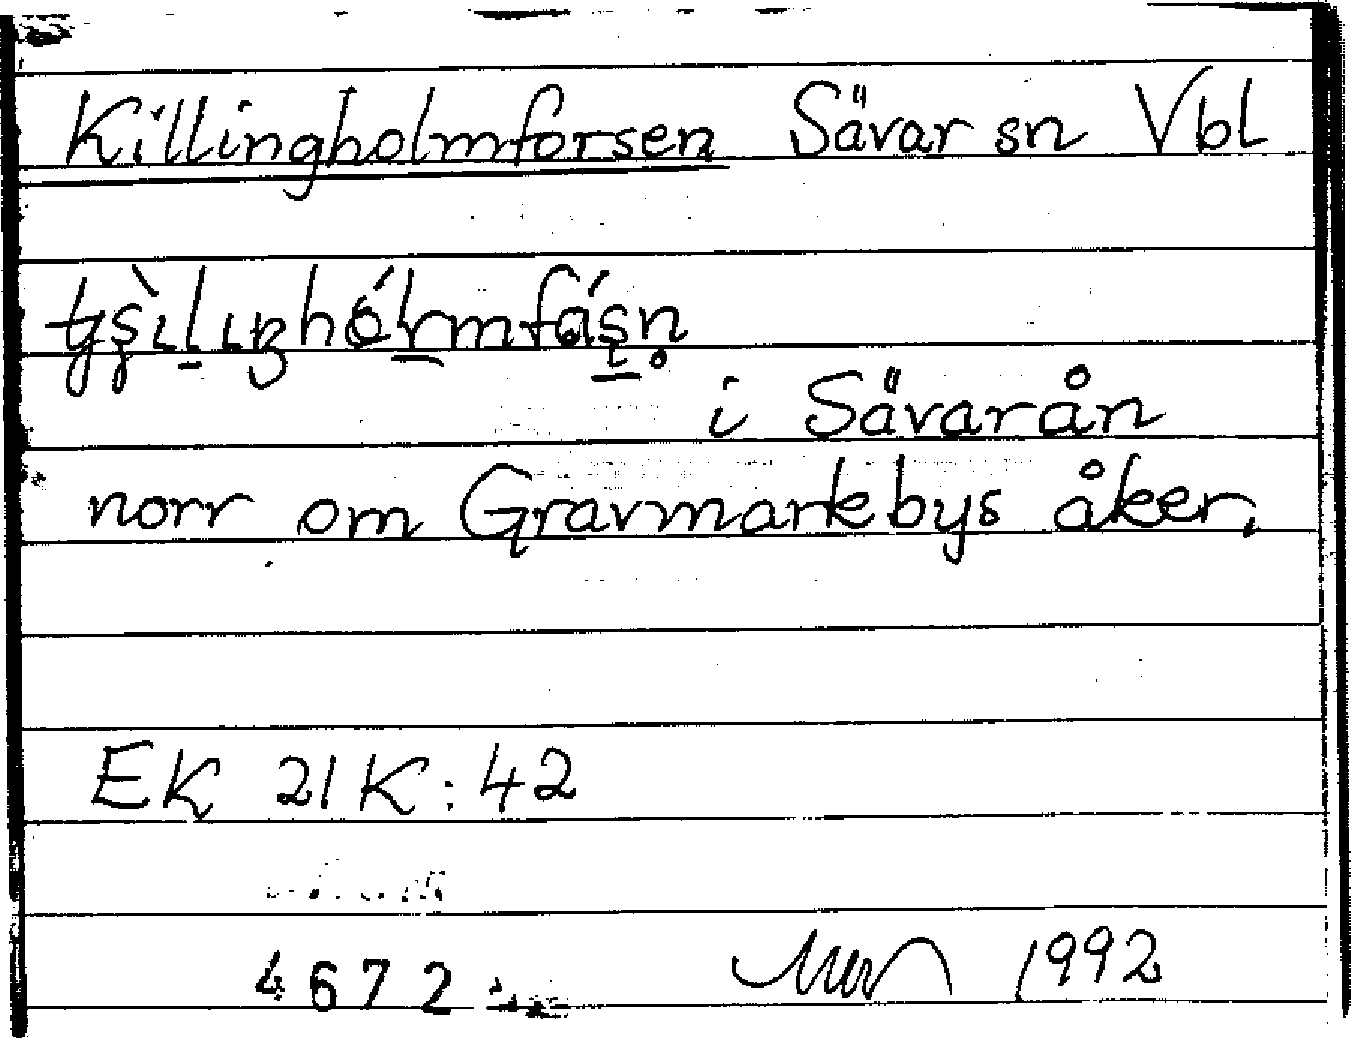 Killingholmforsen Sävar sn Vbl
i Sävarån
norr om Gravmarkbys åker.
EK 21K:42
4672 1992